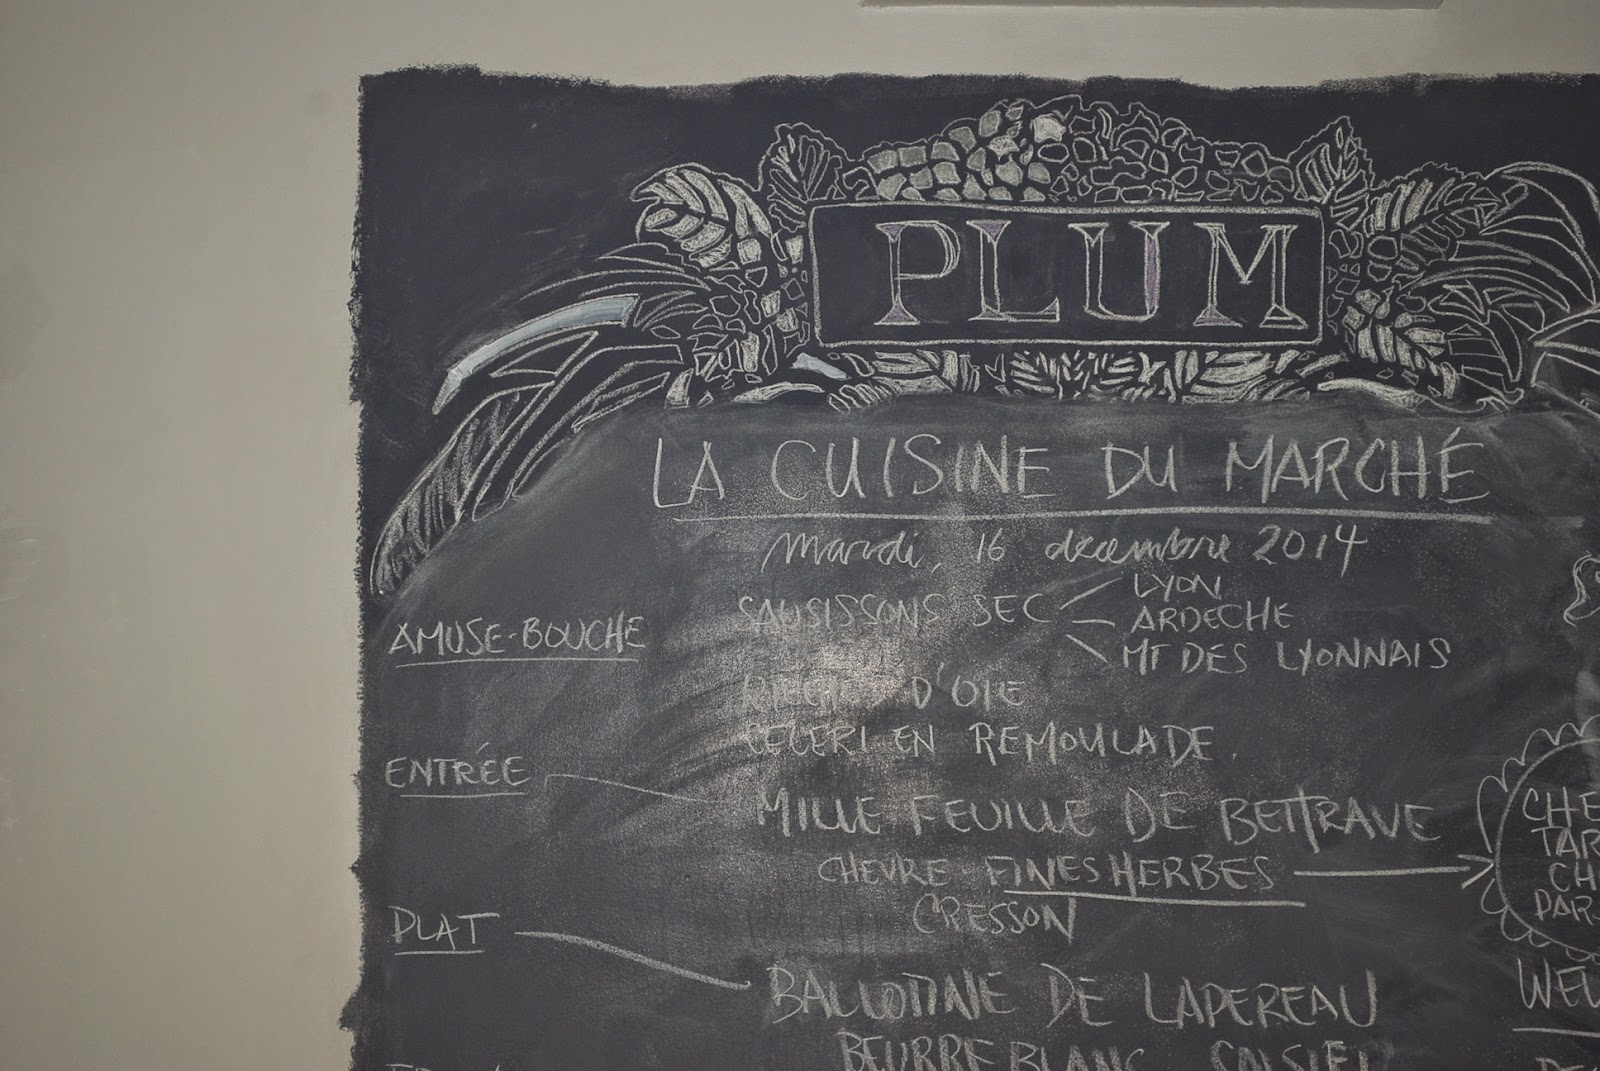 PLUM
LA CUISINE DU MARCHÉ
Mardi, 16 décembre 2014
AMUSE-BOUCHE
SAUSISSONS SEC
LYON
ARDECHE
MT DES LYONNAIS
D'OIE
CELERI EN REMOULADE.
ENTRÉE
MILLE FEUILLE DE BETTRAVE
CHEVRE - FINES HERBES
CRESSON
CHE
TAR
CH
PAR
PLAT
BALLOTTINE DE LAPEREAU
BEURRE BLANC